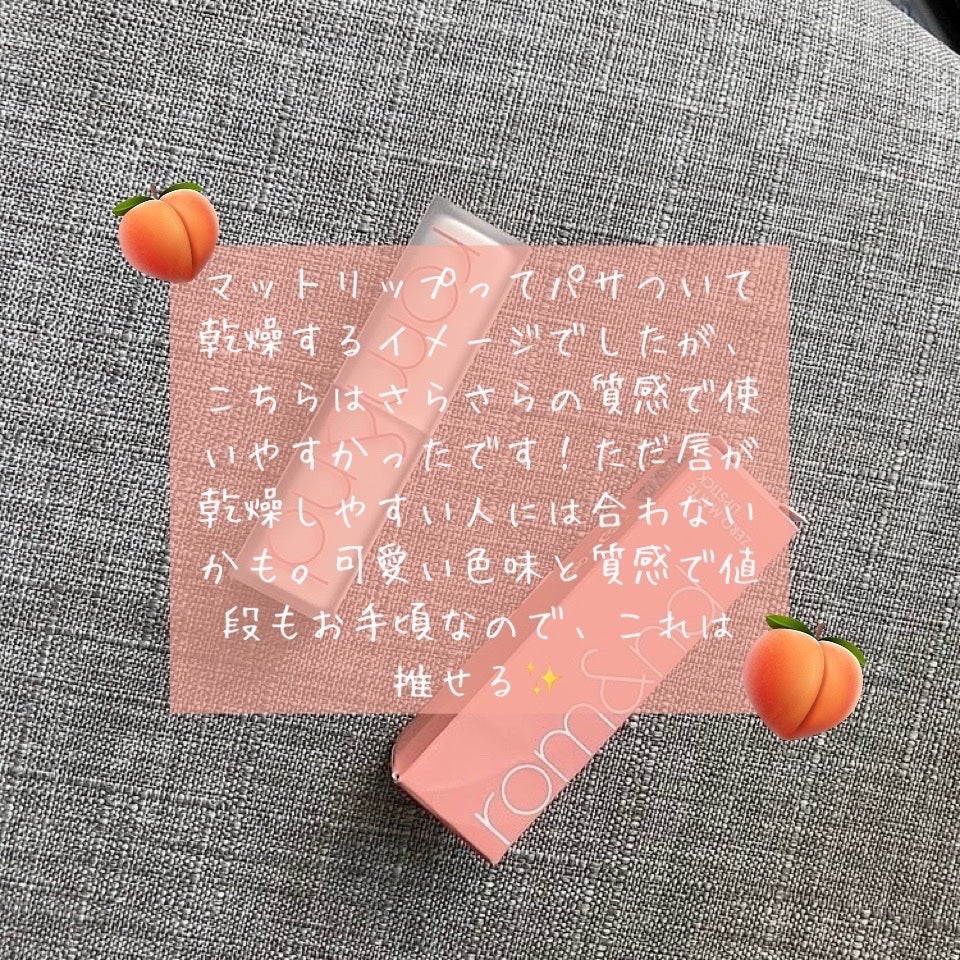 マットリップってパサついて
乾燥するイメージでしたが、
こちらはさらさらの質感で使
いやすかったです！ただ唇が
乾燥しやすい人には合わない
かも。可愛い色味と質感で値
段もお手頃なので、これは
推せる✨
rom&nd
ZERO MATTE
LIPSTICK
rom&nd